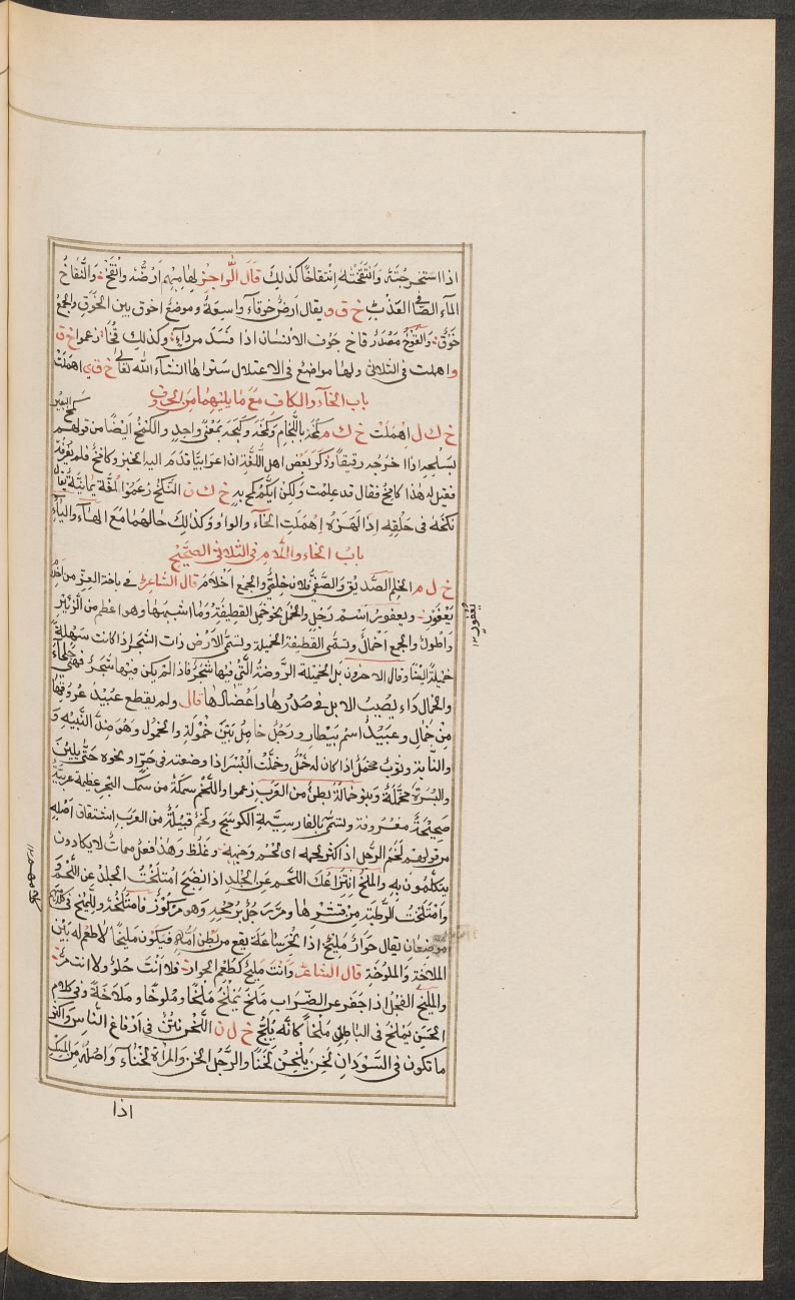 اذا استخرجته وانتقخته انتقاخًا كذلك قال الراجز لهامهم ارضّه وانقخ والنقاخ
المآء الصافى العذب خ ق و يقال ارض خوقآء واسعة وموضع اخوق بين الخوق والجمع
خوق والقوخ مصدر قاخ جوف الانسان اذا فسد من دآء وكذلك قخا زعموا خ ق
وا هملت فى الثلاثى ولها مواضع فى الاعتلال ستراها انشآء الله تعالى خ ق ي اهملت
باب الخآء والكاف مع ما يليهما من الحروف
خ ك ل اهملت خ ك م كمخه باللجام وكمحه وكبحه بمعنى واحد والكمخ ايضًا من قولهم كمخ البعير
بسلحه اذا خرجه رقيقًا وذكر بعض اهل اللغة ان اعرابيًا قدم اليه الخبز وكامخ فلم يعرفه
فقيل له هذا كامخ فقال قد علمت ولكن ايكم كمخ به خ ك ن النكخ زعموا لغة يمانية يقال
نكخه فى حلقه اذا لهزه اهملت الخآء والواو وكذلك حالهما مع الهآء واليآء
باب الخاء واللام فى الثلاثى الصحيح
خ ل م الخلم الصديق والصفى فلان خلمى والجمع اخلام قال الشاعر فى باخة العز من اخلام
يعفور ويعفور اسم رجل والخمل نحو خمل القطيفة وما اشبهها وهو اعظم من الزئبر
واطول والجمع اخمال وتسمى القطيفة الخميلة وتسمى الارض ذات الشجر اذا كانت سهلة
خميلة ايضًا وقال الآخرون بل الخميلة الروضة التى فيها شجر فاذا لم يكن فيها شجر فهى جلحآء
والخمال دآء يصيب الابل فى صدرها واعضالها قال ولم يقطع عبيد عروقها
من خمال وعبيد اسم بيطار ورجل خامل بين خمولة والخمول وهو ضد النبيه و
والنابه وثوب مخمل اذا كان له خمل وخملت البسر اذا وضعته فى جر او نحوه حتى يلين
والبسرة مخملة وبنو خمالة بطن من العرب زعموا واللخم سمكة من سمك البحر عظيمة عربية
صحيحة معروفة وتسمى بالفارسية الكوسج ولخم قبيلة من العرب اشتقاق اصله
من قولهم لخم الرجل اذا كثر لحمه اى لحم وجهه وغلظ وهذا فعل ممات لا يكادون
يتكلمون به والملخ انتزاعك اللحم عن الجلد اذا نضج امتلخت الجلد عن اللحم و
وامتلخت الرطبة من قشرها ومر رجل برمح وهو مركوز فامتلخه وللمليخ فى كلامهم
موضعان يقال حوار مليخ اذا نحر ساعة يقع من بطن امه فيكون مليخًا لا طعم له بين
الملاخة والملوخة قال الشاعر وانت مليخ كطعم الحوار فلا انت حلو ولا انت مر
والمليخ الفحل اذا جفر عن الضراب ملخ يملخ ملخًا وملوخًا وملاخة وفى كلام
الحسن يملخ فى الباطل ملخًا كانه يلج خ ل ن اللخن نتن فى ارفاغ الناس واكثر
ما تكون فى السودان لخن يلخن لخنًا والرجل الخن والمراة لخنآء واصله من اللبن
يعفور
كلامهم
اذا